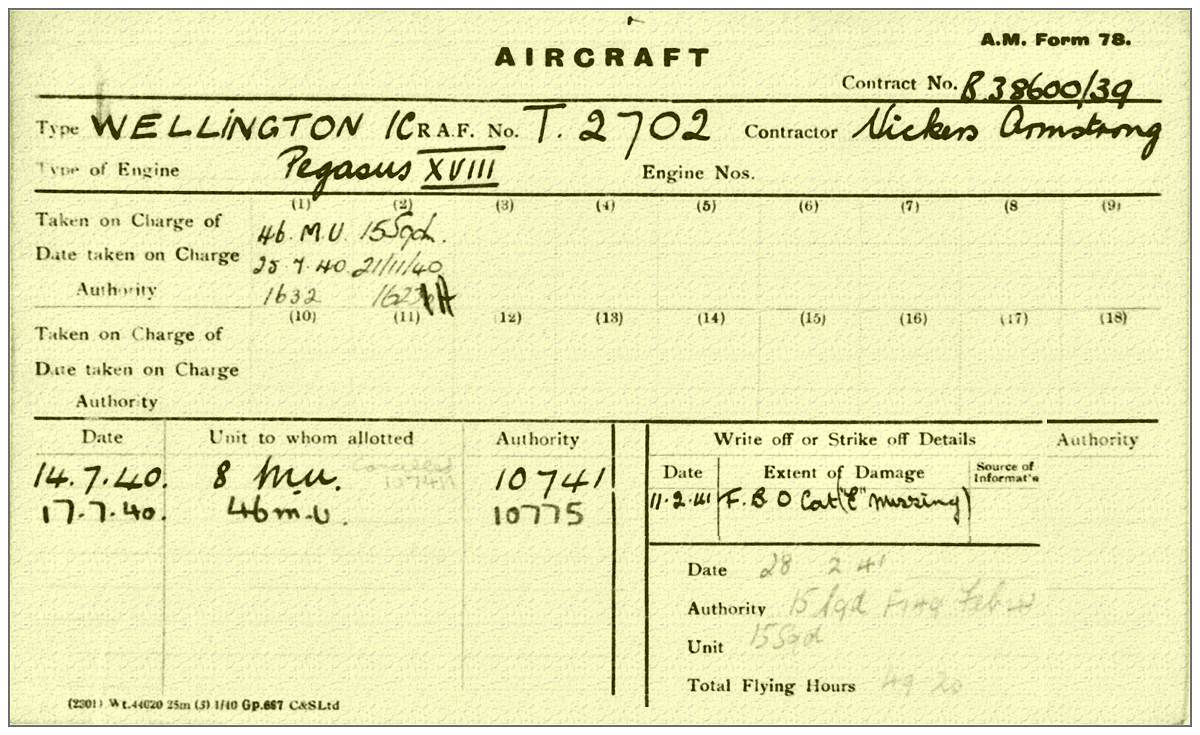 A.M. Form 78.
AIRCRAFT
Contract No. B.38600/39
Type WELLINGTON IC R.A.F. No. T. 2702 Contractor Vickers Armstrong
Type of Engine Pegasus XVIII Engine Nos.
(1) (2) (3) (4) (5) (6) (7) (8 (9)
Taken on Charge of 46. M.U. 15 Sqd.
Date taken on Charge 25.7.40. 21/11/40
Authority 1632
(10) (11) (12) (13) (14) (15) (16) (17) (18)
Taken on Charge of
Date taken on Charge
Authority
Date Unit to whom allotted Authority Write off or Strike off Details Authority
Date Extent of Damage Source of Informat'n
14.7.40. 8 M.U. cancelled 10741
11.2.41 F.B.O Cat ("E" Missing)
17.7.40. 46 M.U. 10775
Date 28 2 41
Authority 15 Sqd Feb 41
Unit 15 Sqd
Total Flying Hours 49 20
(2301) Wt.44020 25m (5) 1/40 Gp.667 C&SLtd